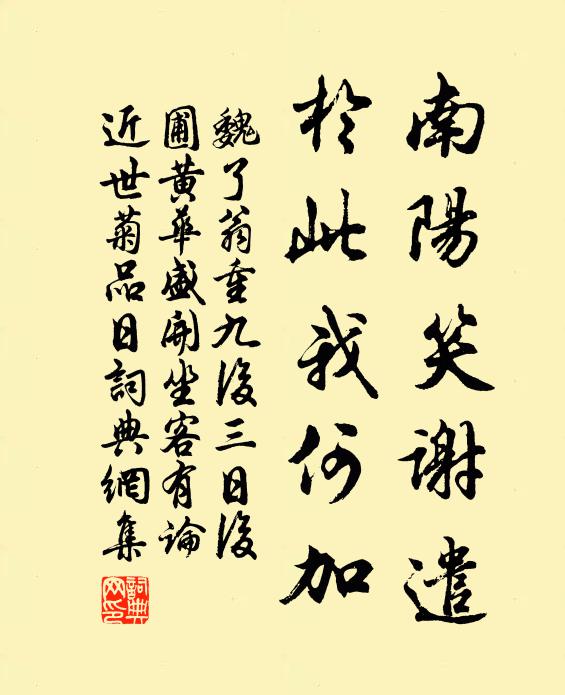 南陽笑謝遣
於此我何加
魏了翁重九後三日後
圃黄華盛開坐客有論
近世菊品日詞典網集
詞典网印